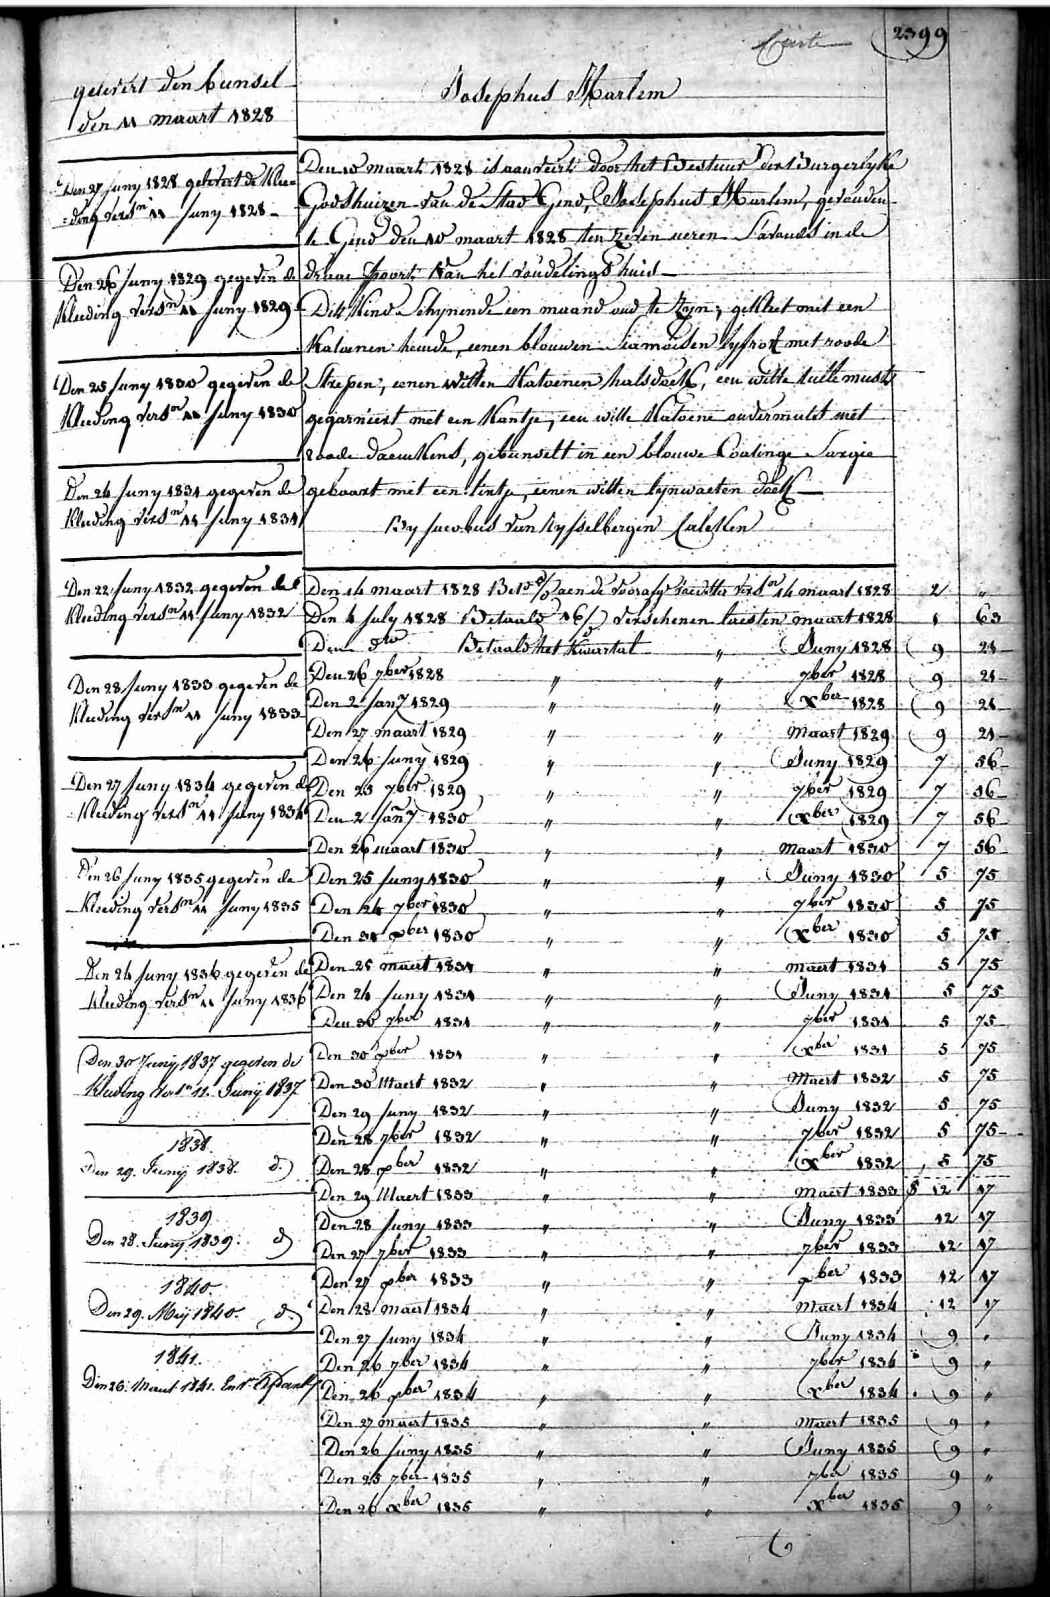 2399
Josephus Martem
gelevert den bunsel
den 11 maart 1828
Den 27 Juny 1828 gelevert de Klee=
=ding versn 11 Juny 1828
Den 26 Juny 1829 gegeven de
Kleeding versn 11 Juny 1829
Den 25 Juny 1830 gegeven de
Kleeding versn 11 Juny 1830
Den 24 Juny 1831 gegeven de
Kleeding versn 11 Juny 1831
Den 22 Juny 1832 gegeven de
Kleeding versn 11 Juny 1832
Den 28 Juny 1833 gegeven de
Kleeding versn 11 Juny 1833
Den 27 Juny 1834 gegeven de
Kleeding versn 11 Juny 1834
Den 26 Juny 1835 gegeven de
Kleeding versn 11 Juny 1835
Den 24 Juny 1836 gegeven de
Kleeding versn 11 Juny 1836
Den 30 Junij 1837 gegeven de
Kleeding versn 11 Junij 1837
1838.
Den 29. Junij 1838. d.)
1839.
Den 28. Junij 1839. d)
1840.
Den 29. Meij 1840. d.)
1841.
Den 26. Maert 1841.
Den 10 maart 1828 is aanveert door het Bestuur der Burgerlyke
Godshuizen van de Stad Gend, Josephus Martem, gevonden
te Gend den 10 maart 1828 ten zeven ueren s'avonds in de
draae poort van het vondelings huis
Dit Kind schynende een maand oud te zyn, gekleet met een
Katoenen hemde, eenen blouwen Siamoisen lyfrok met roode
Strepen, eenen witten Katoenen halsdoek, een witte tulle muts
gegarniert met een Kantje, een witte Katoene ondermuts met
roode daemkens, gebunselt in een blouwe Coatinge Sargie
geboort met een lintje, eenen witten lynwaeten doek
By Jacobus van Rysselbergen Calcken
Den 14 maart 1828 aen de voorafg versn 14 maart 1828 2 "
Den 4 july 1828 Betaald 16/ verschenen laesten maart 1828 1 63
Den dto Betaald het Kwartal " Juny 1828 9 21
Den 26 7ber 1828 " " 7ber 1828 9 21
Den 2 Jany 1829 " " Xber 1828 9 21
Den 27 maart 1829 " " Maart 1829 9 21
Den 26 Juny 1829 " " Juny 1829 7 56
Den 25 7ber 1829 " " 7ber 1829 7 56
Den 2 Jany 1830 " " Xber 1829 7 56
Den 26 maart 1830 " " Maart 1830 7 56
Den 25 Juny 1830 " " Juny 1830 5 75
Den 24 7ber 1830 " " 7ber 1830 5 75
Den 31 xber 1830 " " Xber 1830 5 75
Den 25 maert 1831 " " maert 1831 5 75
Den 24 Juny 1831 " " Juny 1831 5 75
Den 30 7ber 1831 " " 7ber 1831 5 75
Den 30 xber 1831 " " Xber 1831 5 75
Den 30 Maert 1832 " " Maert 1832 5 75
Den 29 Juny 1832 " " Juny 1832 5 75
Den 28 7ber 1832 " " 7ber 1832 5 75
Den 28 xber 1832 " " Xber 1832 5 75
Den 29 Maert 1833 " " Maert 1833 12 17
Den 28 Juny 1833 " " Juny 1833 12 17
Den 27 7ber 1833 " " 7ber 1833 12 17
Den 27 xber 1833 " " xber 1833 12 17
Den 28 Maert 1834 " " Maert 1834 12 17
Den 27 Juny 1834 " " Juny 1834 9 "
Den 26 7ber 1834 " " 7ber 1834 9 "
Den 26 xber 1834 " " Xber 1834 9 "
Den 27 maert 1835 " " maert 1835 9 "
Den 26 Juny 1835 " " Juny 1835 9 "
Den 25 7ber 1835 " " 7ber 1835 9 "
Den 26 Xber 1835 " " Xber 1835 9 "